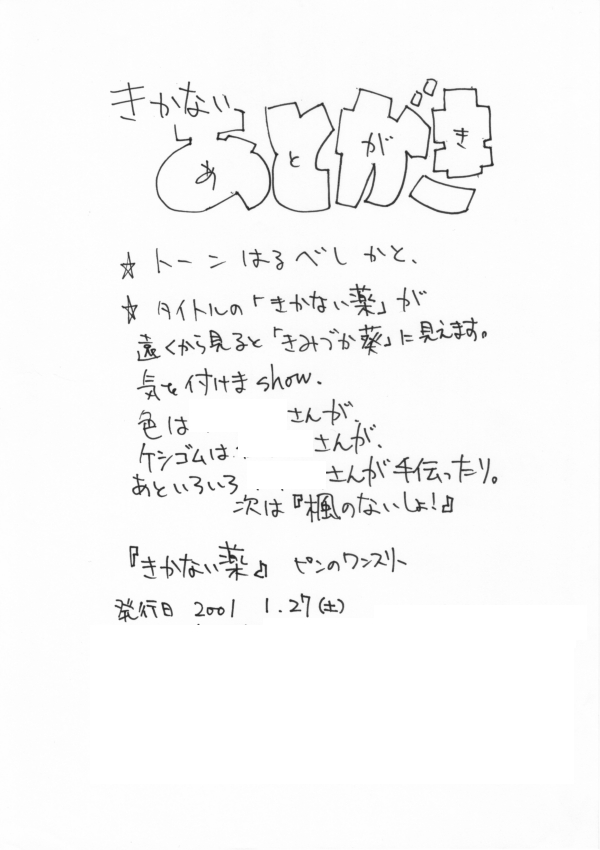 きかない
あとがき
☆ トーン はるべし かと、
☆ タイトルの「きかない薬」が
遠くから見ると「きみづか葵」に見えます。
気を付けま show.
色は さんが、
ケシゴムは さんが、
あといろいろ さんが手伝ったり。
次は『楓のないしょ!』
『きかない薬』 ピンのワンスリー
発行日 2001 1.27(土)